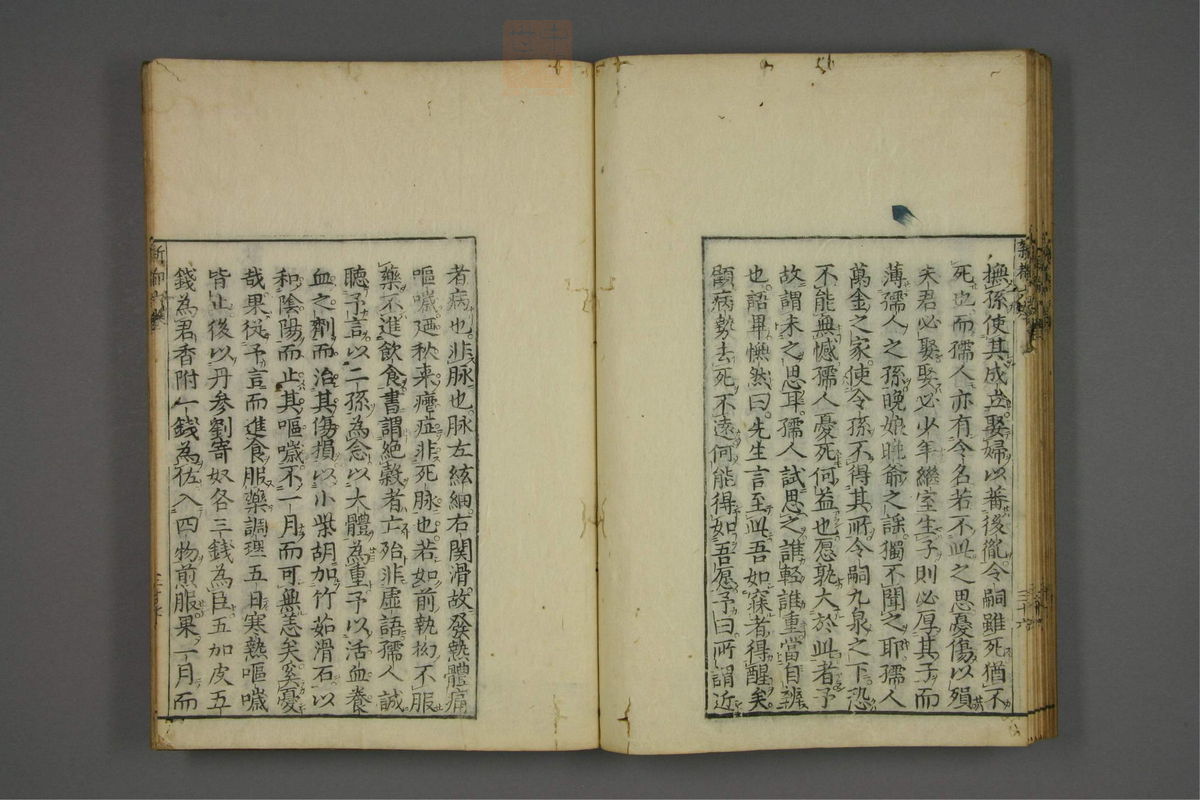 撫孫使其成立娶婦以蕃後徹令嗣雖死猶不
死也而孺人亦有令名若不此之思憂傷以殞
未君必娶娶必少年繼室生子則必厚其子而
薄孺人之孫晚娘晩爺之謡獨不聞之耶孺人
萬金之家使令孫不得其所令嗣九泉之下恐
不能無憾孺人憂死何益也愿孰大於此者予
故謂未之思耳孺人試思之誰輕誰重當自辨
也語畢憮然曰先生言至此吾如寐者得醒矣
顧病勢去死不遠何能得如吾愿予曰所謂近
者病也非脉也脉左絃細右関滑故發熱體痛
嘔噦廼秋来瘧症非死脉也若如前執拗不服
藥不進飲食書謂絶穀者亡殆非虚語孺人誠
聴予言以二孫為念以大體為重予以活血養
血之劑而治其傷損以小柴胡加竹茹滑石以
和陰陽而止其嘔噦不一月而可無恙矣奚憂
哉果從予言而進食服藥調理五日寒熱嘔噦
皆止後以丹参劉寄奴各三錢為臣五加皮五
錢為君香附一錢為佐入四物煎服果一月而